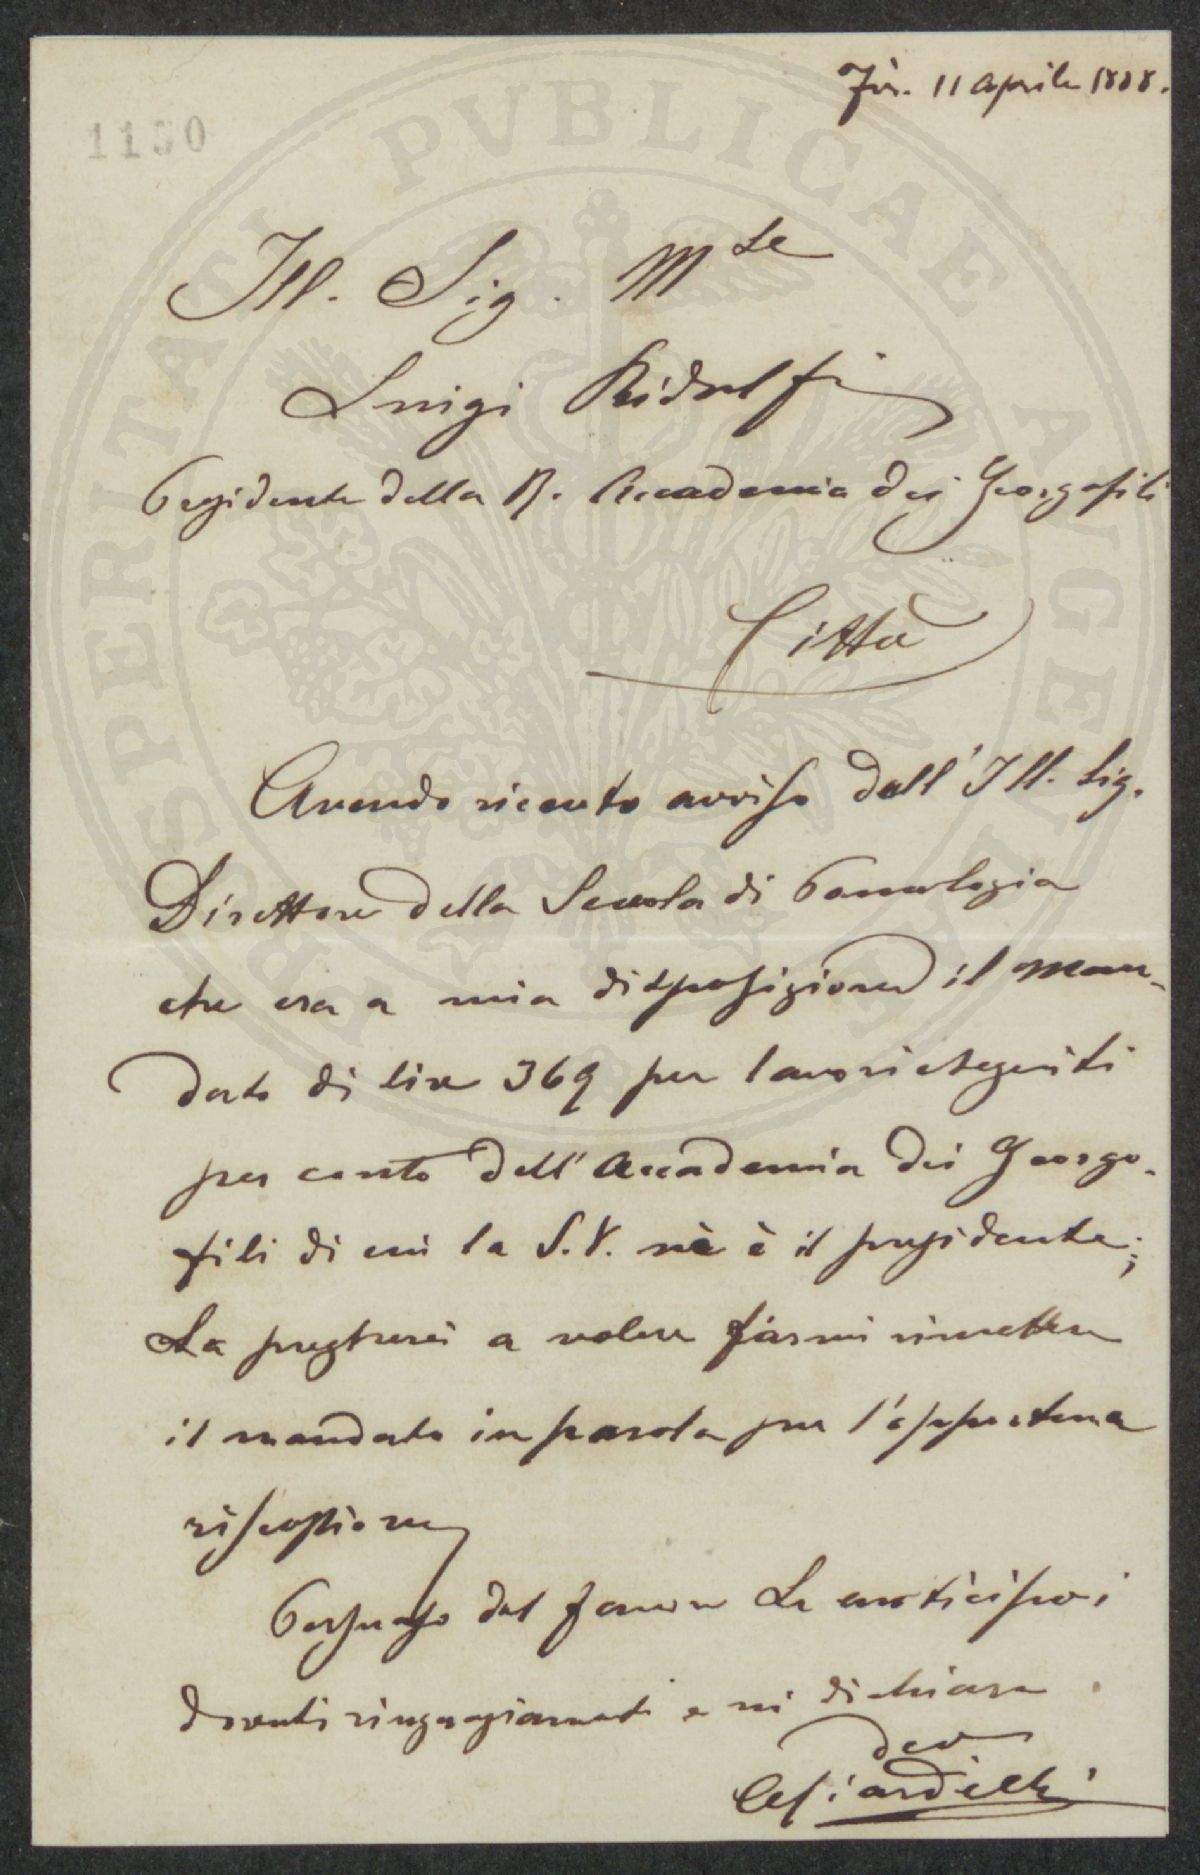 1130
Fir. 11 Aprile 1888.
Ill. Sig. Mse
Luigi Ridolfi
Presidente della R. Accademia dei Georgofili
Città
Avendo ricevuto avviso dall'Ill. Sig.
Direttore della Scuola di Pomologia
che era a mia disposizione il man-
dato di lire 369 per lavori eseguiti
per conto dell'Accademia dei Georgo-
fili di cui la S.V. nè è il presidente;
La pregherei a volere farmi rimettere
il mandato in parola per l'opportuna
riscossione
Persuaso del favore Le anticipo i
dovuti ringraziamenti e mi dichiaro
dev
PROSPERITATI PVBLICAE AVGENDAE